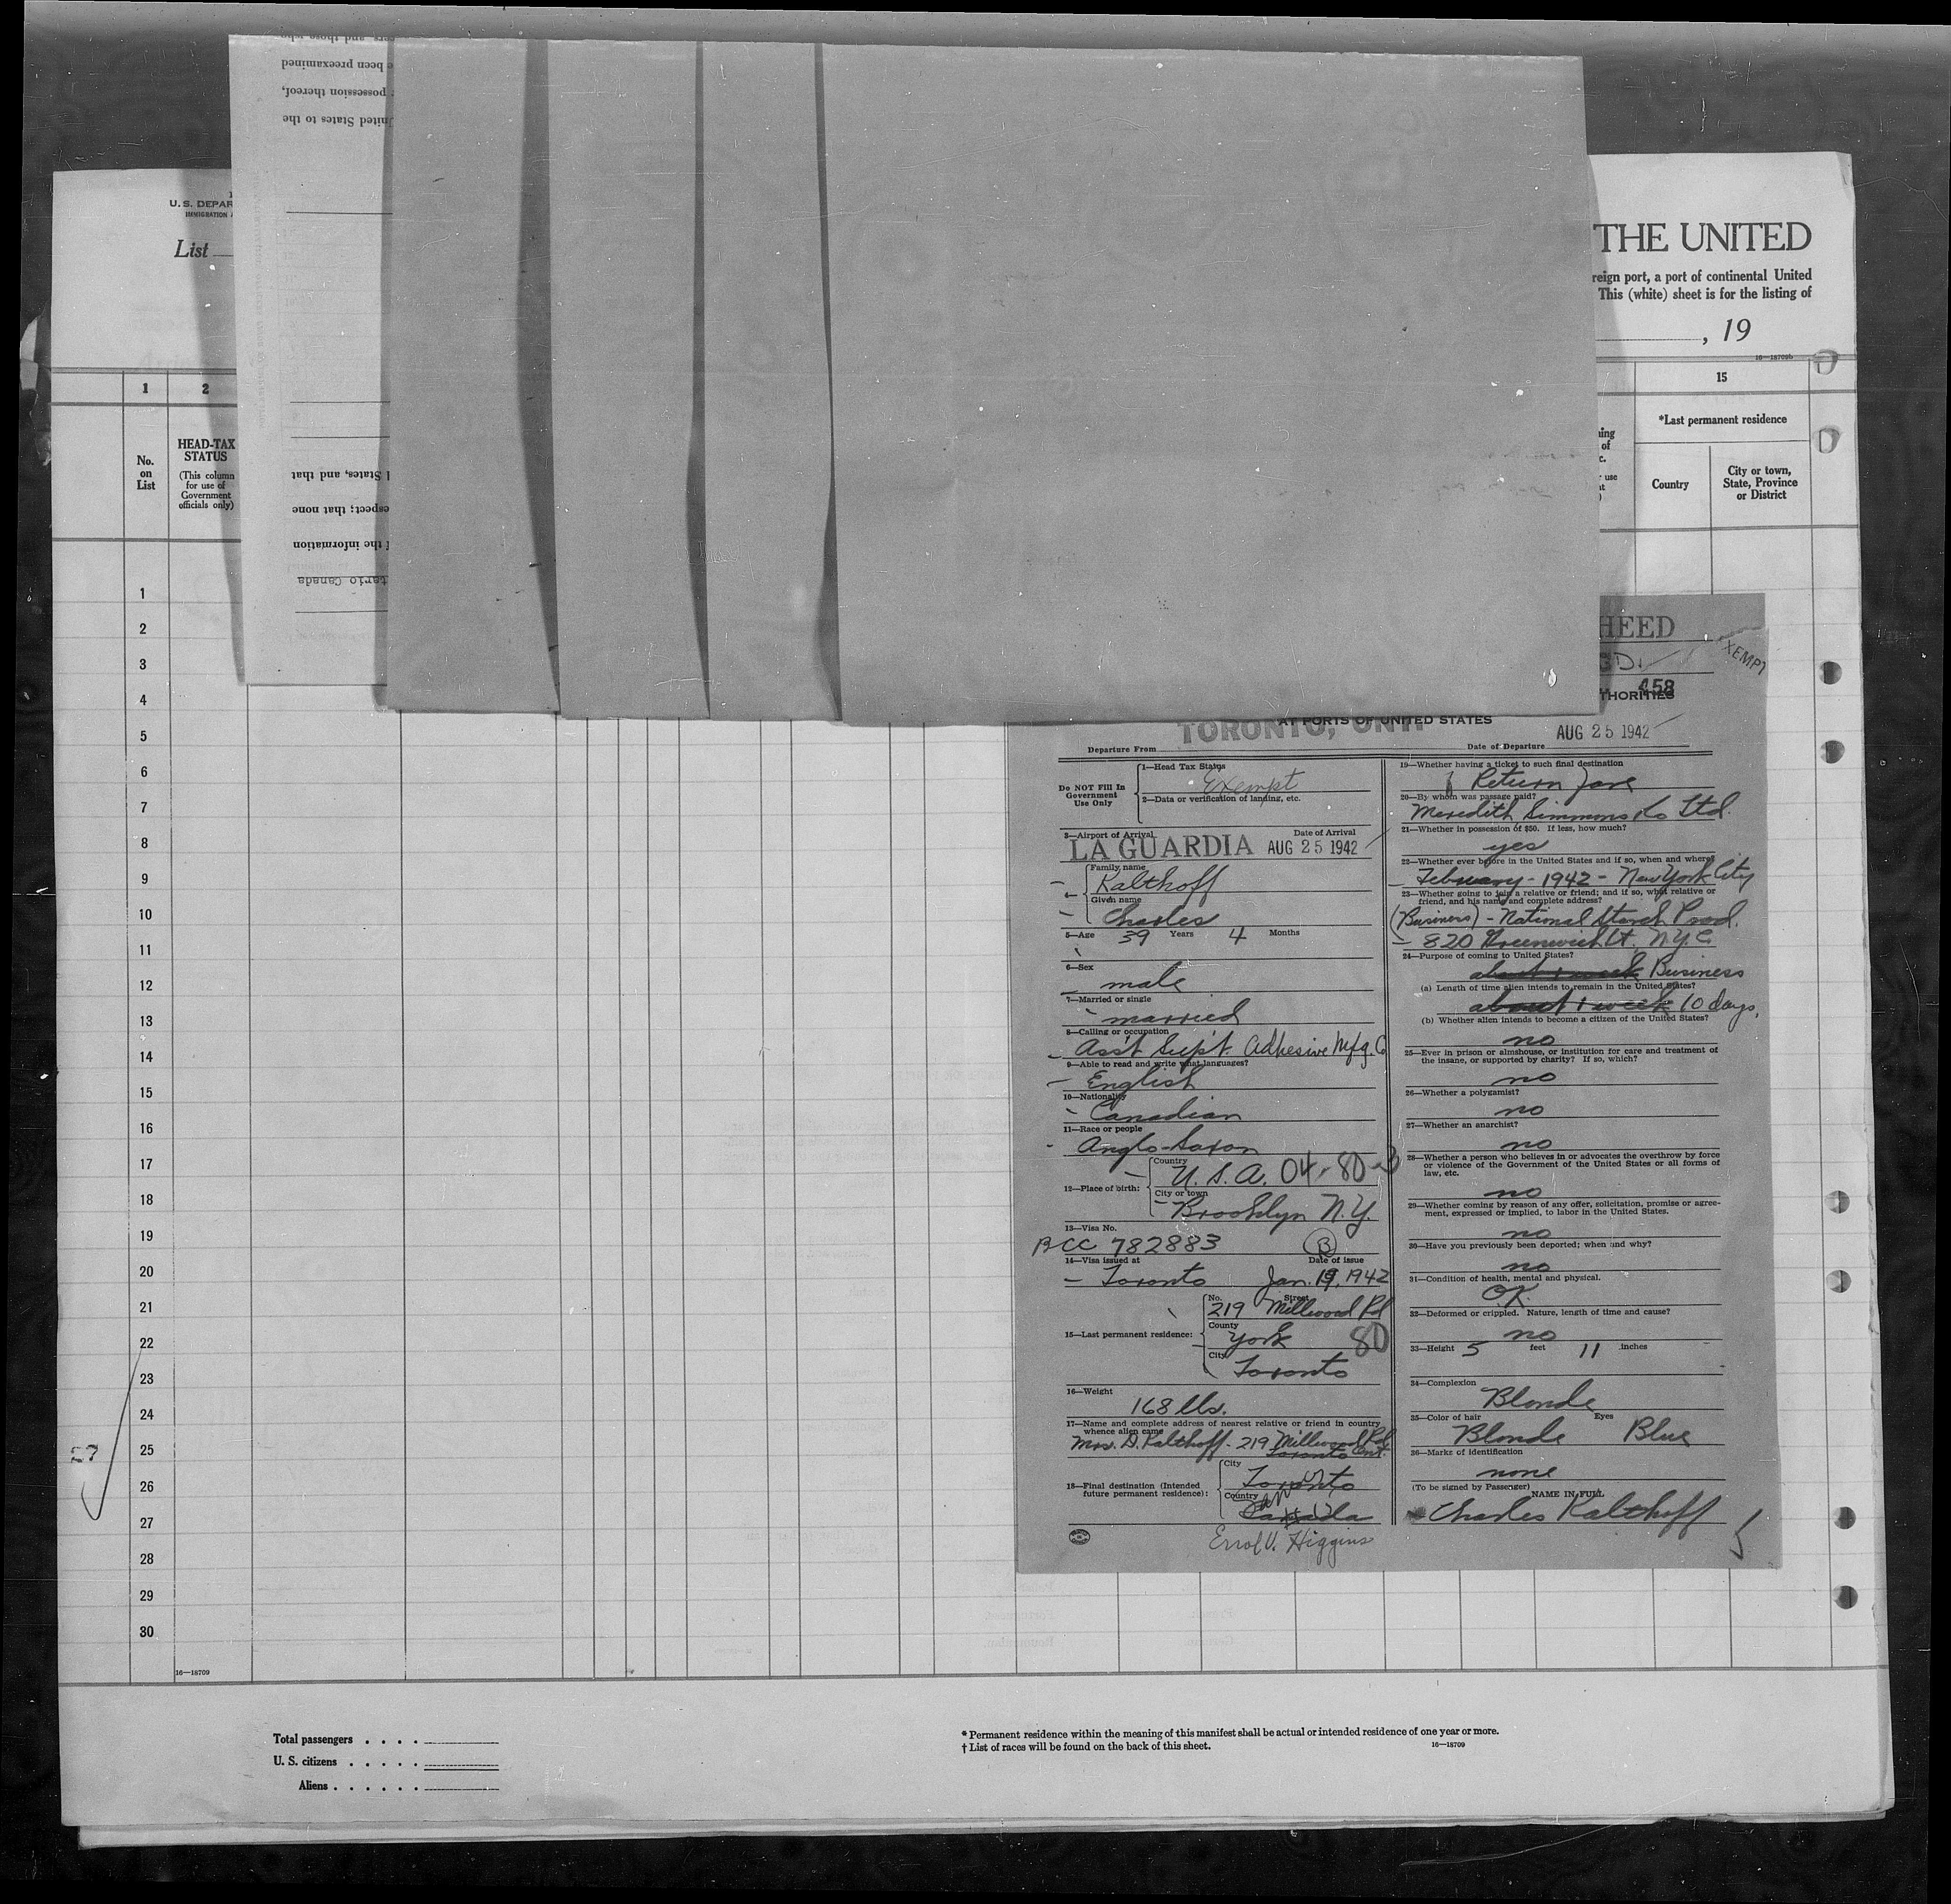 e been preexamined
possession thereof,
United States to the
l States, and that
espect; that none
f the information
tario Canada
U. S. DEPAR
IMMIGRATION
List
THE UNITED
reign port, a port of continental United
This (white) sheet is for the listing of
, 19
16—18709b
1
2
15
No.
on
List
HEAD-TAX
STATUS
(This column
for use of
Government
officials only)
*Last permanent residence
Country
City or town,
State, Province
or District
1
2
3
4
5
6
7
8
9
10
11
12
13
14
15
16
17
18
19
20
21
22
23
24
25
26
27
28
29
30
27
16—18709
HEED
EXEMPT
458
THORITIES
AT PORTS OF UNITED STATES
TORONTO, ONT.
AUG 25 1942
Departure From
Date of Departure
Do NOT Fill In
Government
Use Only
1—Head Tax Status
Exempt
2—Data or verification of landing, etc.
3—Airport of Arrival
Date of Arrival
LA GUARDIA AUG 25 1942
4—
Family name
Kalthoff
Given name
Charles
5—Age 39 Years 4 Months
6—Sex
male
7—Married or single
married
8—Calling or occupation
Ass't Supt. Adhesive Mfg. Co
9—Able to read and write what languages?
English
10—Nationality
Canadian
11—Race or people
Anglo-Saxon
12—Place of birth:
Country
U. S. A. 04-80-3
City or town
Brooklyn N.Y.
13—Visa No.
BCC 782883 B
14—Visa issued at
Date of issue
Toronto Jan. 19, 1942
15—Last permanent residence:
No. Street
219 Millwood Rd
County
York 80
City
Toronto
16—Weight
168 lbs.
17—Name and complete address of nearest relative or friend in country
whence alien came
Mrs. D. Kalthoff - 219 Millwood Rd
Toronto Ont.
18—Final destination (Intended
future permanent residence):
City
Toronto
Country
Canada
Errol V. Higgins
19—Whether having a ticket to such final destination
Return fare
20—By whom was passage paid?
Meredith Simmons Co Ltd.
21—Whether in possession of $50. If less, how much?
yes
22—Whether ever before in the United States and if so, when and where?
February - 1942 - New York City
23—Whether going to join a relative or friend; and if so, what relative or
friend, and his name and complete address?
(Business) - National Starch Prod.
820 Greenwich St. N.Y.C.
24—Purpose of coming to United States?
about 1 week Business
(a) Length of time alien intends to remain in the United States?
about 1 week 10 days.
(b) Whether alien intends to become a citizen of the United States?
no
25—Ever in prison or almshouse, or institution for care and treatment of
the insane, or supported by charity? If so, which?
no
26—Whether a polygamist?
no
27—Whether an anarchist?
no
28—Whether a person who believes in or advocates the overthrow by force
or violence of the Government of the United States or all forms of
law, etc.
no
29—Whether coming by reason of any offer, solicitation, promise or agree-
ment, expressed or implied, to labor in the United States.
no
30—Have you previously been deported; when and why?
no
31—Condition of health, mental and physical.
OK.
32—Deformed or crippled. Nature, length of time and cause?
no
33—Height 5 feet 11 inches
34—Complexion
Blonde
35—Color of hair Eyes
Blonde Blue
36—Marks of identification
none
(To be signed by Passenger)
NAME IN FULL
Charles Kalthoff
Total passengers
U. S. citizens
Aliens
* Permanent residence within the meaning of this manifest shall be actual or intended residence of one year or more.
† List of races will be found on the back of this sheet.
16—18709